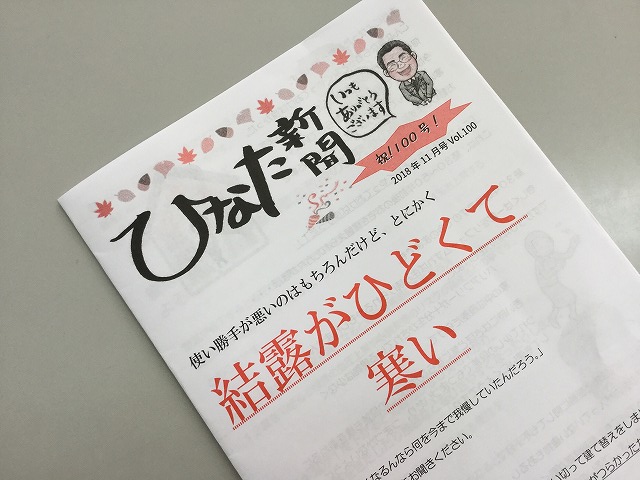 ひなた新聞
いつも
ありがとう
ございます
祝!100号!
2018年11月号 Vol.100
使い勝手が悪いのはもちろんだけど、とにかく
結露がひどくて
寒い
なるんなら何を今まで我慢していたんだろう。」
お聞きください。
い切って建て替えをしま
がつらかった